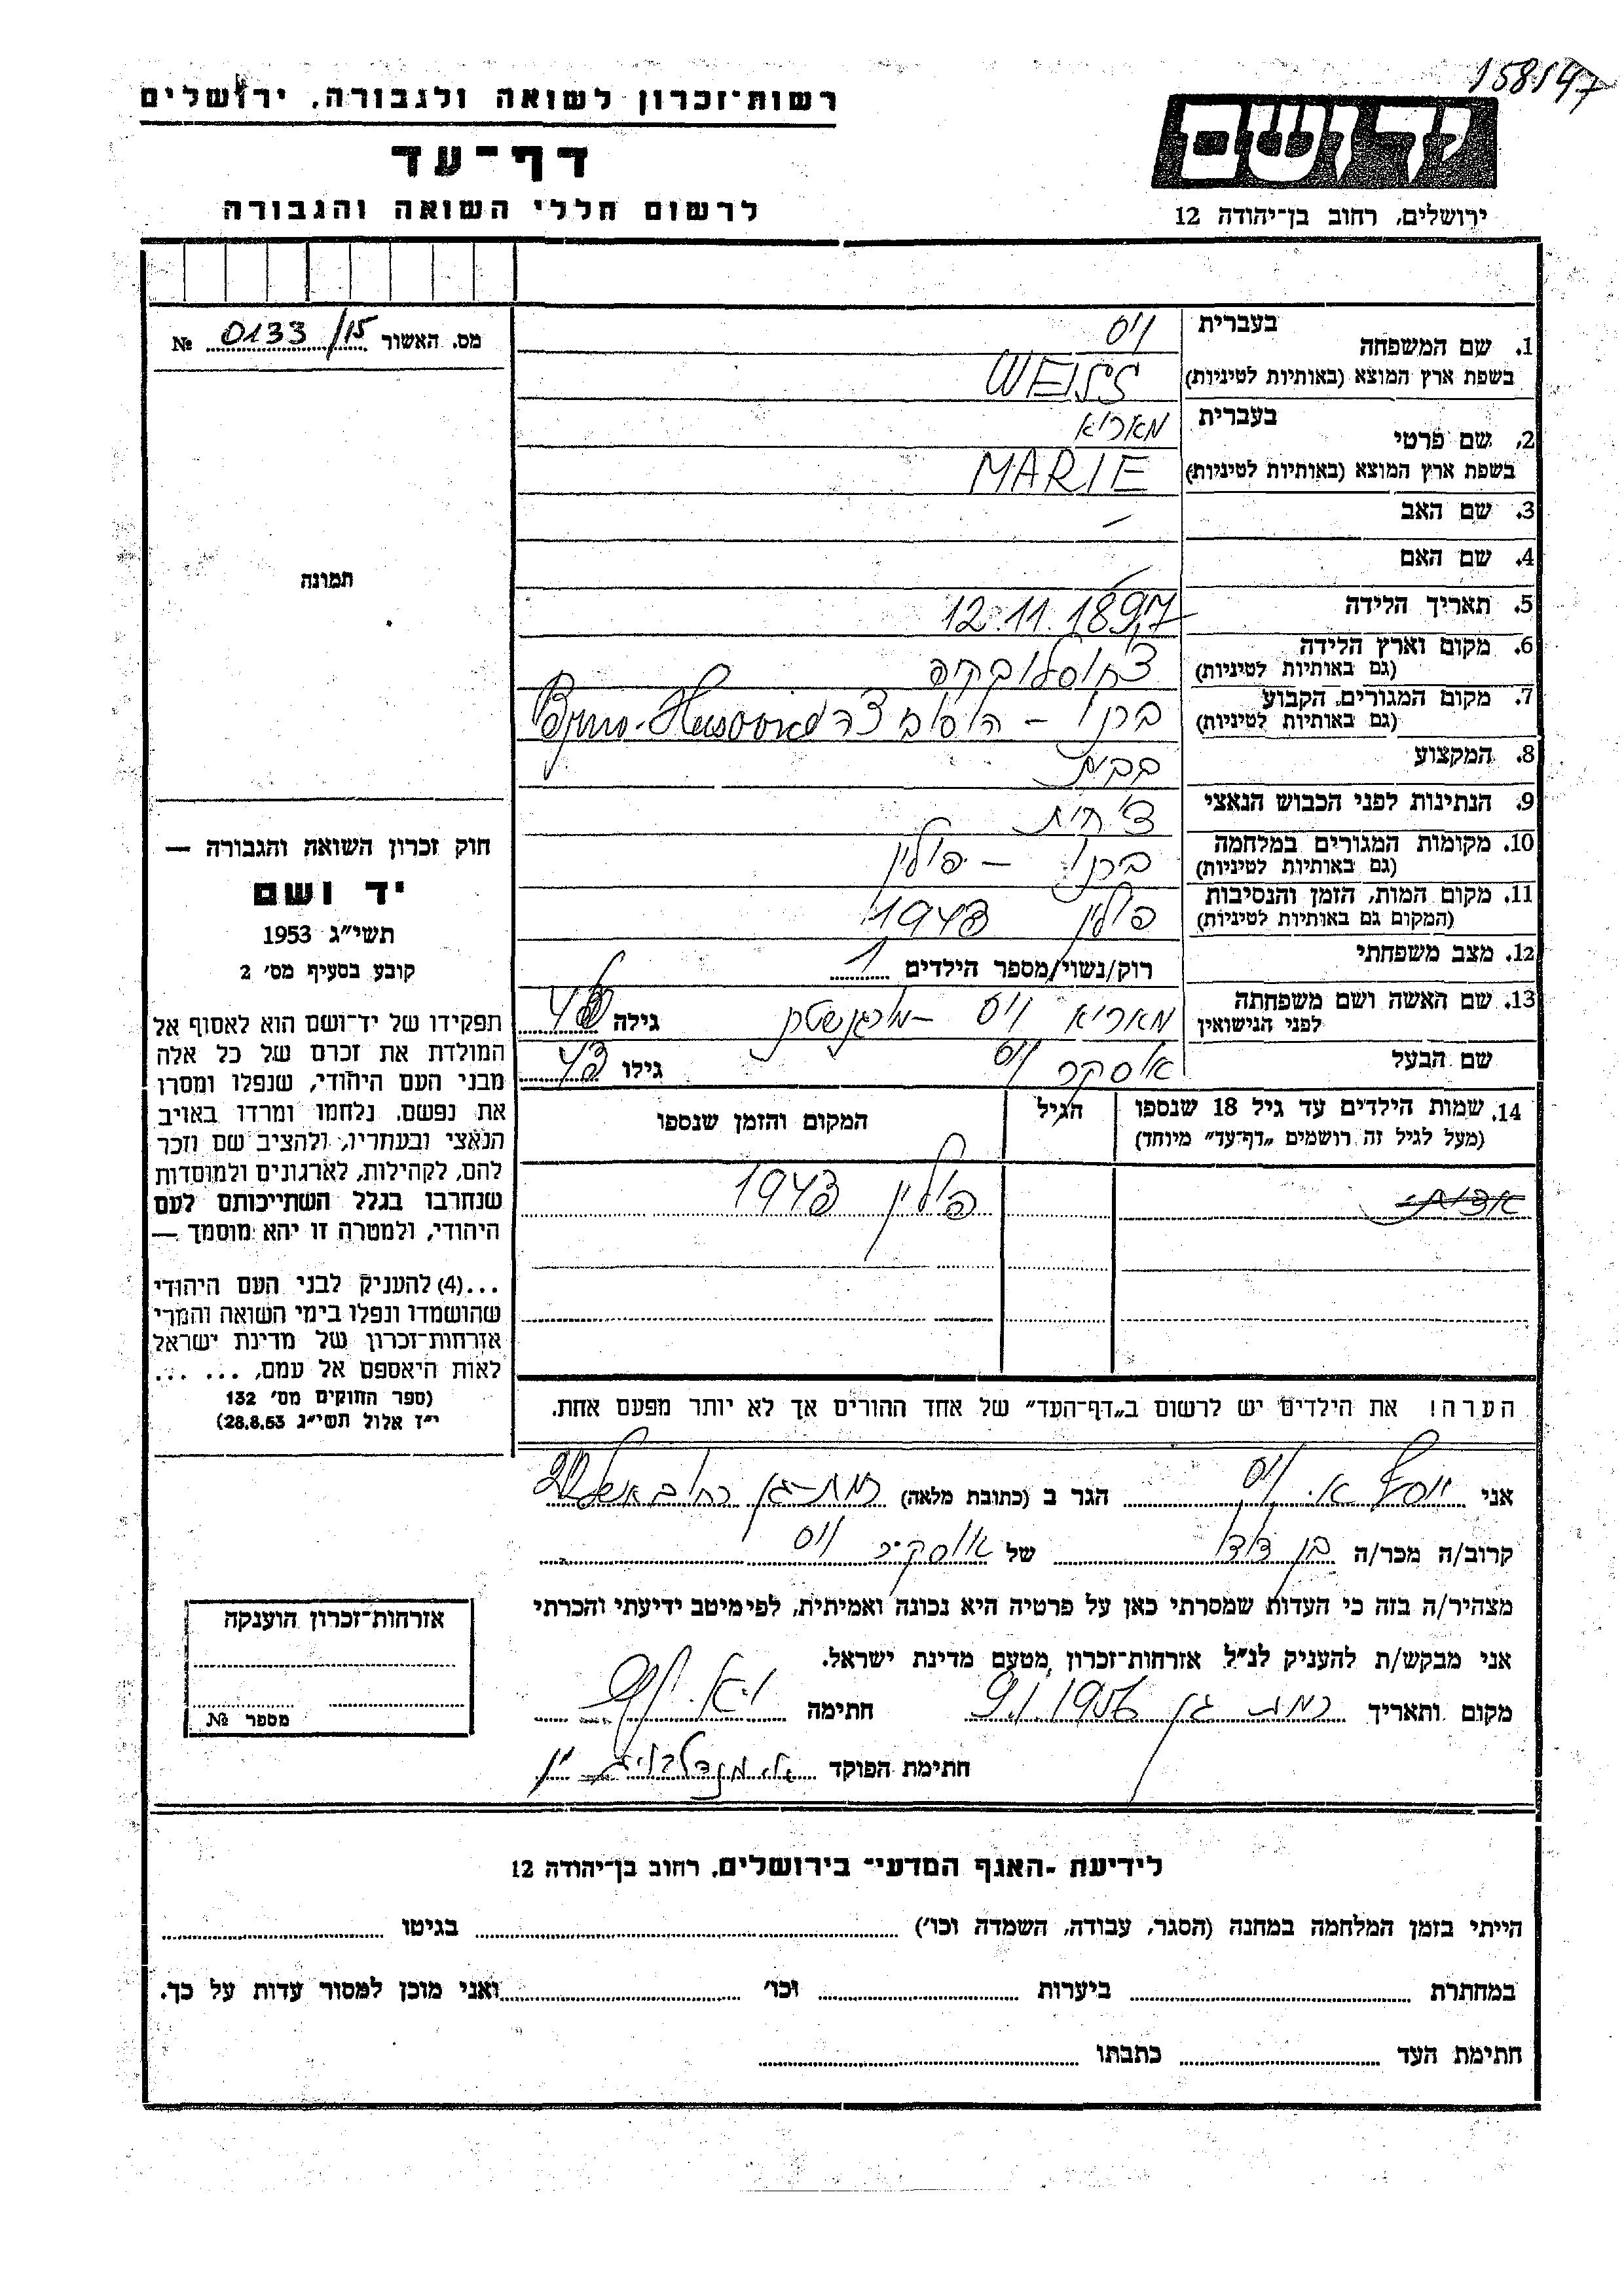 158147
רשות-זכרון לשואה ולגבורה, ירושלים
דף-עד
לרשום חללי השואה והגבורה
ידושם
ירושלים, רחוב בן-יהודה 12
מס. האשור 0133/15 №
תמונה
חוק זכרון השואה והגבורה —
יד ושם
תשי"ג 1953
קובע בסעיף מס' 2
תפקידו של יד-ושם הוא לאסוף אל
המולדת את זכרם של כל אלה
מבני העם היהודי, שנפלו ומסרו
את נפשם, נלחמו ומרדו באויב
הנאצי ובעוזריו, ולהציב שם וזכר
להם, לקהילות, לארגונים ולמוסדות
שנחרבו בגלל השתייכותם לעם
היהודי, ולמטרה זו יהא מוסמך —
...(4) להעניק לבני העם היהודי
שהושמדו ונפלו בימי השואה והמרי
אזרחות-זכרון של מדינת ישראל
לאות היאספם אל עמם, ... ...
(ספר החוקים מס' 132
י"ז אלול תשי"ג 28.8.53)
1. שם המשפחה בעברית ויס
בשפת ארץ המוצא (באותיות לטיניות) WEISS
2. שם פרטי בעברית מאריא
בשפת ארץ המוצא (באותיות לטיניות) MARIE
3. שם האב –
4. שם האם –
5. תאריך הלידה 12.11.1897
6. מקום וארץ הלידה
(גם באותיות לטיניות) צ'חוסלובקיה
7. מקום המגורים הקבוע
(גם באותיות לטיניות) ברנו –
8. המקצוע ב.בית
9. הנתינות לפני הכבוש הנאצי צ'כית
10. מקומות המגורים במלחמה
(גם באותיות לטיניות) ברנו – פולין
11. מקום המות, הזמן והנסיבות
(המקום גם באותיות לטיניות) פולין 1943
12. מצב משפחתי רוק/נשוי/מספר הילדים 1
13. שם האשה ושם משפחתה
לפני הנישואין מאריא ויס – מורגנשטרן גילה
שם הבעל אוסקר ויס גילו 43
14. שמות הילדים עד גיל 18 שנספו
(מעל לגיל זה רושמים "דף-עד" מיוחד)
הגיל
המקום והזמן שנספו
פולין 1943
הערה! את הילדים יש לרשום ב"דף-העד" של אחד ההורים אך לא יותר מפעם אחת.
אני יוסף א. ויס הגר ב (כתובת מלאה) רמת-גן רחוב
קרוב/ה מכר/ה בן דוד של אוסקר ויס
מצהיר/ה בזה כי העדות שמסרתי כאן על פרטיה היא נכונה ואמיתית, לפי מיטב ידיעתי והכרתי
אני מבקש/ת להעניק לנ"ל אזרחות-זכרון מטעם מדינת ישראל.
מקום ותאריך רמת גן 9.1.1956 חתימה
חתימת הפוקד
אזרחות-זכרון הוענקה
מספר №
לידיעת -האגף המדעי- בירושלים, רחוב בן-יהודה 12
הייתי בזמן המלחמה במחנה (הסגר, עבודה, השמדה וכו') בגיטו
במחתרת ביערות וכו' ואני מוכן למסור עדות על כך.
חתימת העד כתבתו